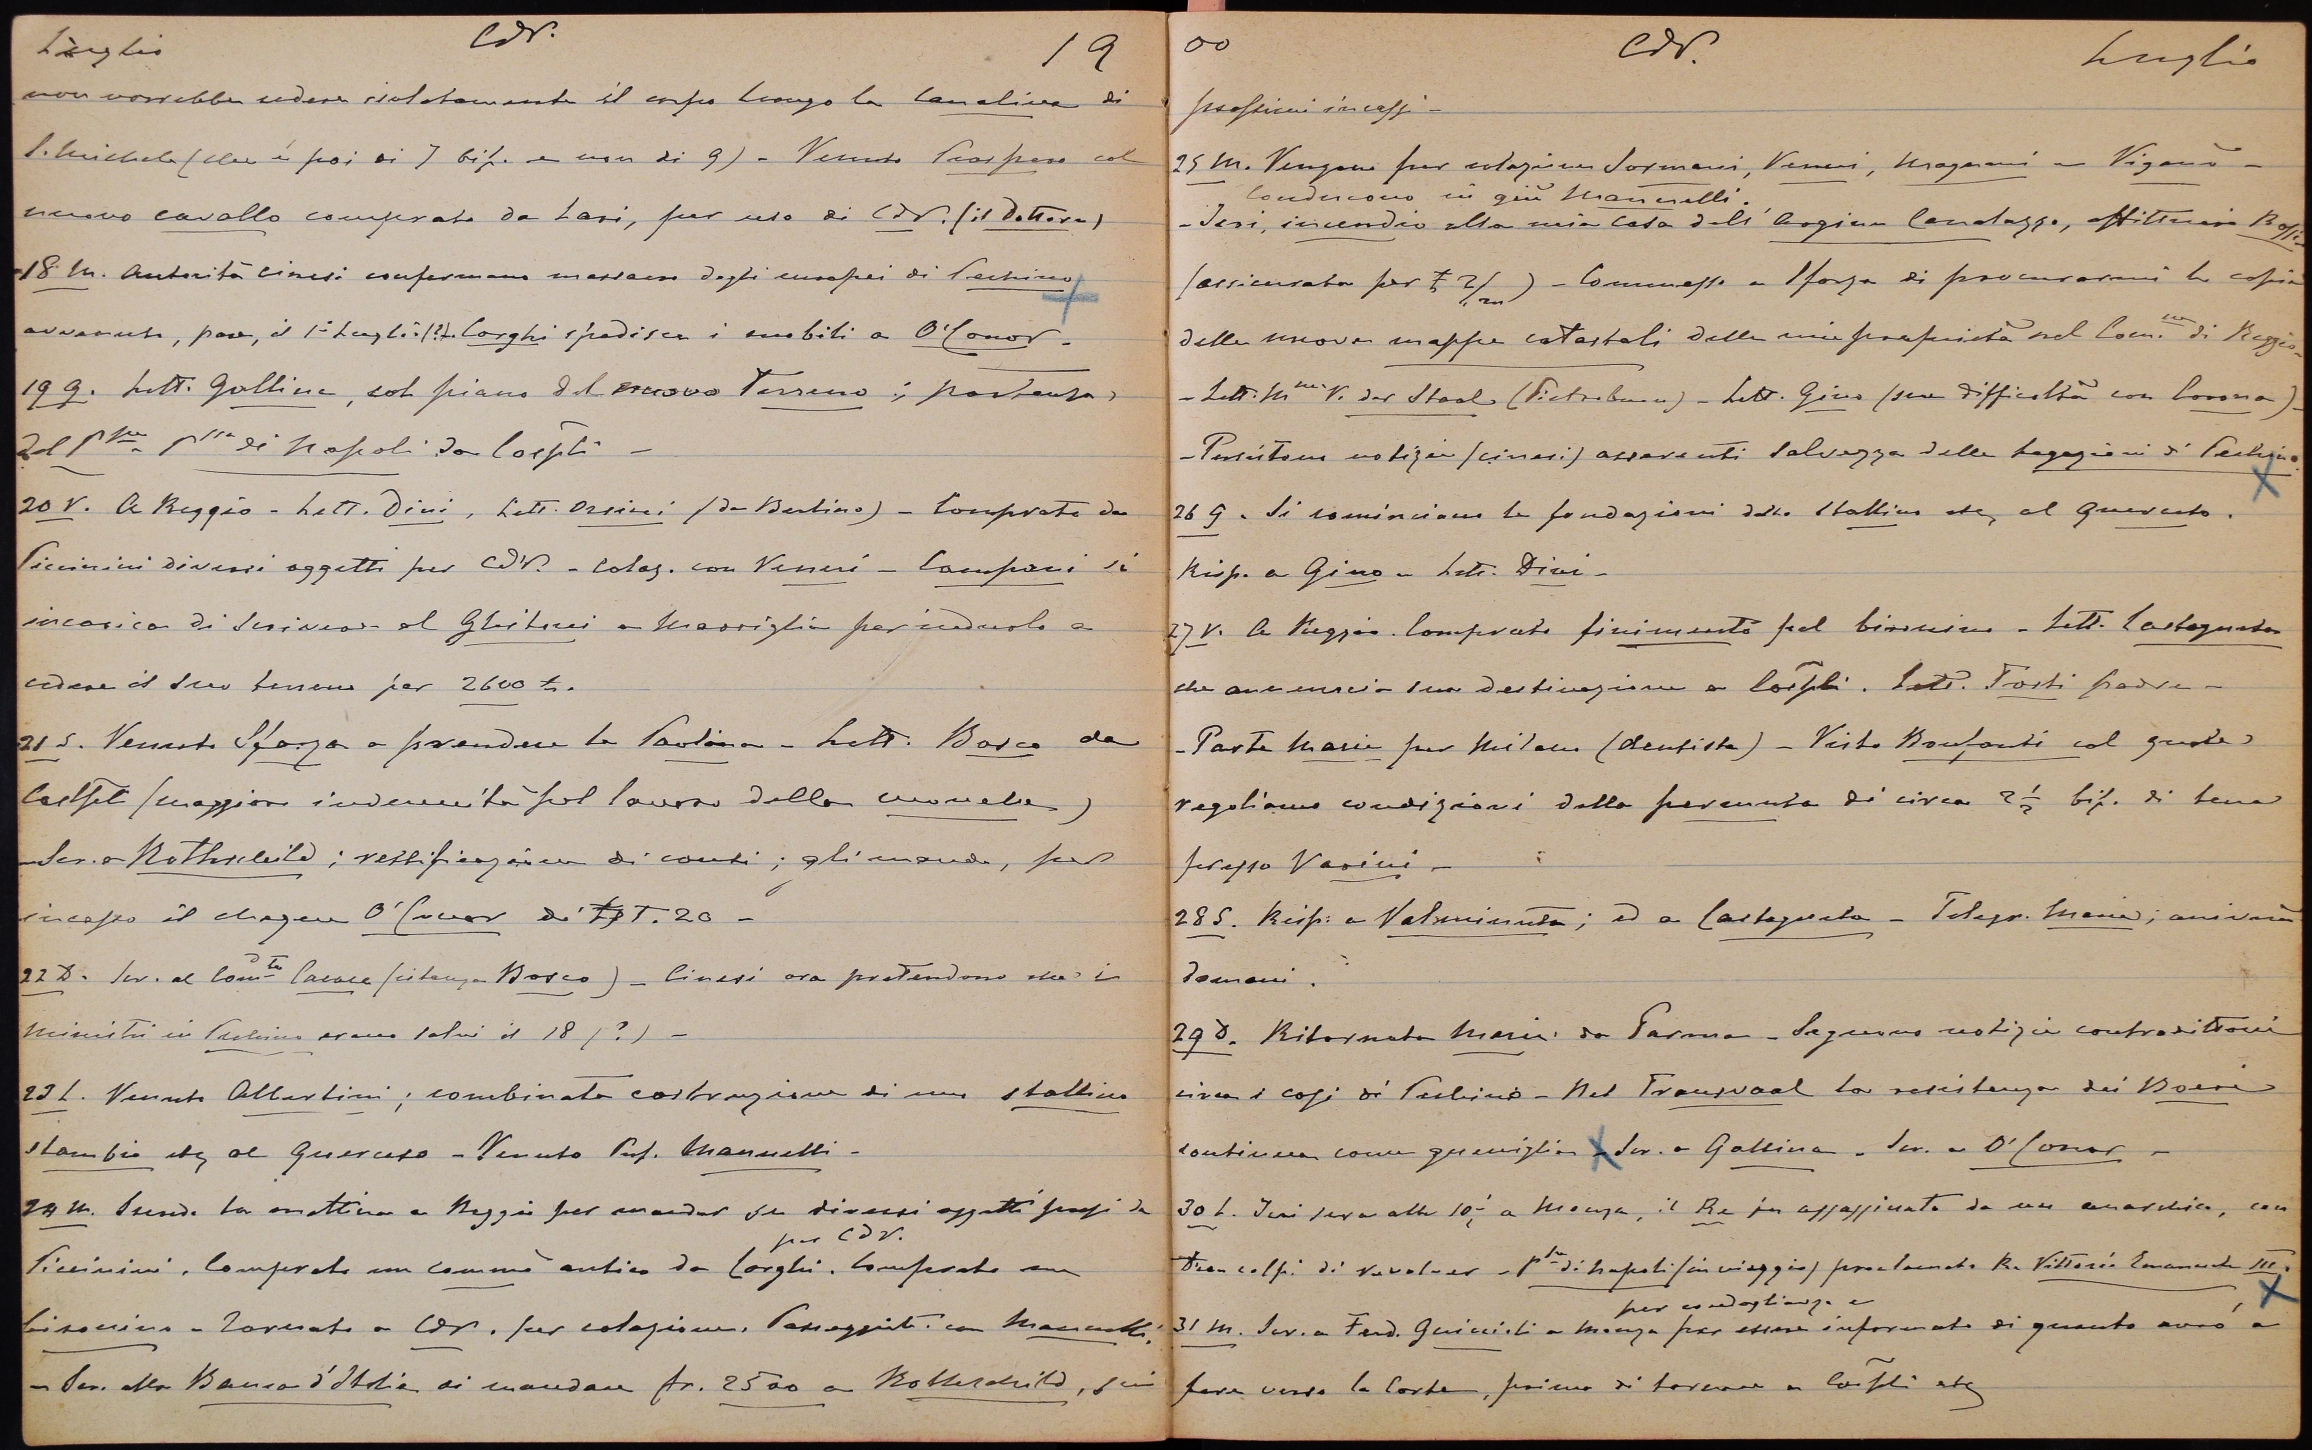 Luglio CdV. 19
non vorrebbe cedere isolatamente il corpo lungo la Canalina di
S. Michele (che è poi di 7 bif. e non di 9) - Venuto Prospero col
nuovo cavallo comprato da Lari, per uso di CdV. (il Dottore)
18 M. Autorità cinesi confermano massacro degli europei di Pechino
avvenuto, pare, il 1° Luglio (?) - Corghi spedisce i mobili a O'Conor -
19 G. Lett. Gallina, col piano del nuovo Terreno; partenza
del Ppe e Pssa di Napoli da Cospli -
20 V. A Reggio - Lett. Dini, Lett. Orsini (da Berlino) - Comprato da
Piccinini diversi oggetti per CdV. - Colaz. con Veneri - Campani si
incarica di scrivere al Ghitani a Marsiglia per indurlo a
cedere il suo terreno per 2600 £.
21 S. Venuto Sforza a prendere la Paolina - Lett. Bosco da
Costpli (maggiore indennità pel lavoro della moneta)
- Scr. a Rothschild; rettificazione di conti; gli mando, per
incasso il chèque O'Conor di £T. 20 -
22 D. Scr. al Comdte Casale (istanza Bosco) - Cinesi ora pretendono che i
Ministri in Pechino erano salvi il 18 (?) -
23 L. Venuto Albertini; combinata costruzione di una stallina
stambio etc al Querceto - Venuto Prof. Mannelli -
24 M. Scendo la mattina a Reggio per mandar su diversi oggetti presi da
per CdV.
Piccinini. Comprato un commò antico da Corghi. Comprato un
biroccino - Tornato a CdV. per colazione. Passeggiata con Mannelli.
- Scr. alla Banca d'Italia di mandare fr. 2500 a Rothschild, sui
00 CdV. Luglio
prossimi incassi -
25 M. Vengono per colazione Sormani, Veneri, Magnani e Viganò -
Conducono in giù Mannelli.
- Ieri, incendio alla mia casa dell'Argine Canalazzo, affittuario Rossi
(assicurata per £ 2/m) - Commesso a Sforza di procurarmi la copia
delle nuove mappe catastali delle mie proprietà nel Com.ne di Reggio -
- Lett. Mme V. der Staal (Pietroburgo) - Lett. Gino (sue difficoltà con Corona) -
- Persistono notizie (cinesi) asserenti salvezza delle Legazioni di Pechino.
26 G. Si cominciano le fondazioni della Stallina etc, al Querceto.
Risp. a Gino - Lett. Dini -
27 V. A Reggio. Comprato finimento pel biroccino - Lett. Castagneto
che annuncia sua destinazione a Cospli. Lett. Forti padre -
- Parte Maria per Milano (dentista) - Visto Bonfanti col quale
regoliamo condizioni della permuta di circa 2½ bif. di terra
presso Vasini -
28 S. Risp. a Valminuta; ed a Castagneto - Telegr. Maria; arriverà
domani.
29 D. Ritornata Maria da Parma - Seguono notizie contradittorie
circa i casi di Pechino - Nel Transvaal la resistenza dei Boeri
continua come guerriglia - Scr. a Gallina - Scr. a O'Conor -
30 L. Ieri sera alle 10½ a Monza, il Re fu assassinato da un anarchico, con
tre colpi di revolver - Ppe di Napoli (in viaggio) proclamato Re Vittorio Emanuele III.
per condoglianze e
31 M. Scr. a Ferd. Guiccioli a Monza per essere informato di quanto avrò a
fare verso la Corte, prima di tornare a Cospli etc